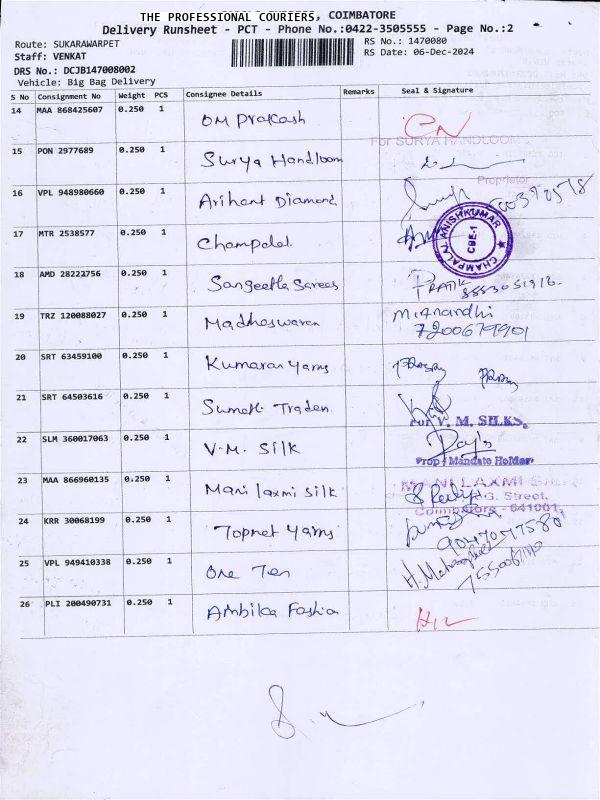 THE PROFESSIONAL COURIERS, COIMBATORE
Delivery Runsheet - PCT - Phone No.:0422-3505555 - Page No.:2
Route: SUKARAWARPET
RS No.: 1470080
Staff: VENKAT
RS Date: 06-Dec-2024
DRS No.: DCJB147008002
Vehicle: Big Bag Delivery
S No Consignment No Weight PCS Consignee Details Remarks Seal & Signature
14 MAA 868425607 0.250 1 OM Prakash
For SURYA HANDLOOM
15 PON 2977689 0.250 1 Surya Handloom
Proprietor
16 VPL 948980660 0.250 1 Arihant Diamond
17 MTR 2538577 0.250 1 Champalal
CHAMPALAL ANISHKUMAR
CBE-1
18 AMD 28222756 0.250 1 Sangeetha Sarees PRATIK
19 TRZ 120088027 0.250 1 Madheswaran M. Anandhi
7200679901
20 SRT 63459100 0.250 1 Kumaran Yarns
21 SRT 64503616 0.250 1 Sumathi Traders
For V. M. SILKS,
22 SLM 360017063 0.250 1 V.M. Silk
Prop / Mandate Holder
23 MAA 866960135 0.250 1 Mani laxmi Silk
MANI LAXMI
G. Street,
Coimbatore - 641001
24 KRR 30068199 0.250 1 Topnet Yarns
25 VPL 949410338 0.250 1 One Ten
26 PLI 200490731 0.250 1 Ambika Fashion